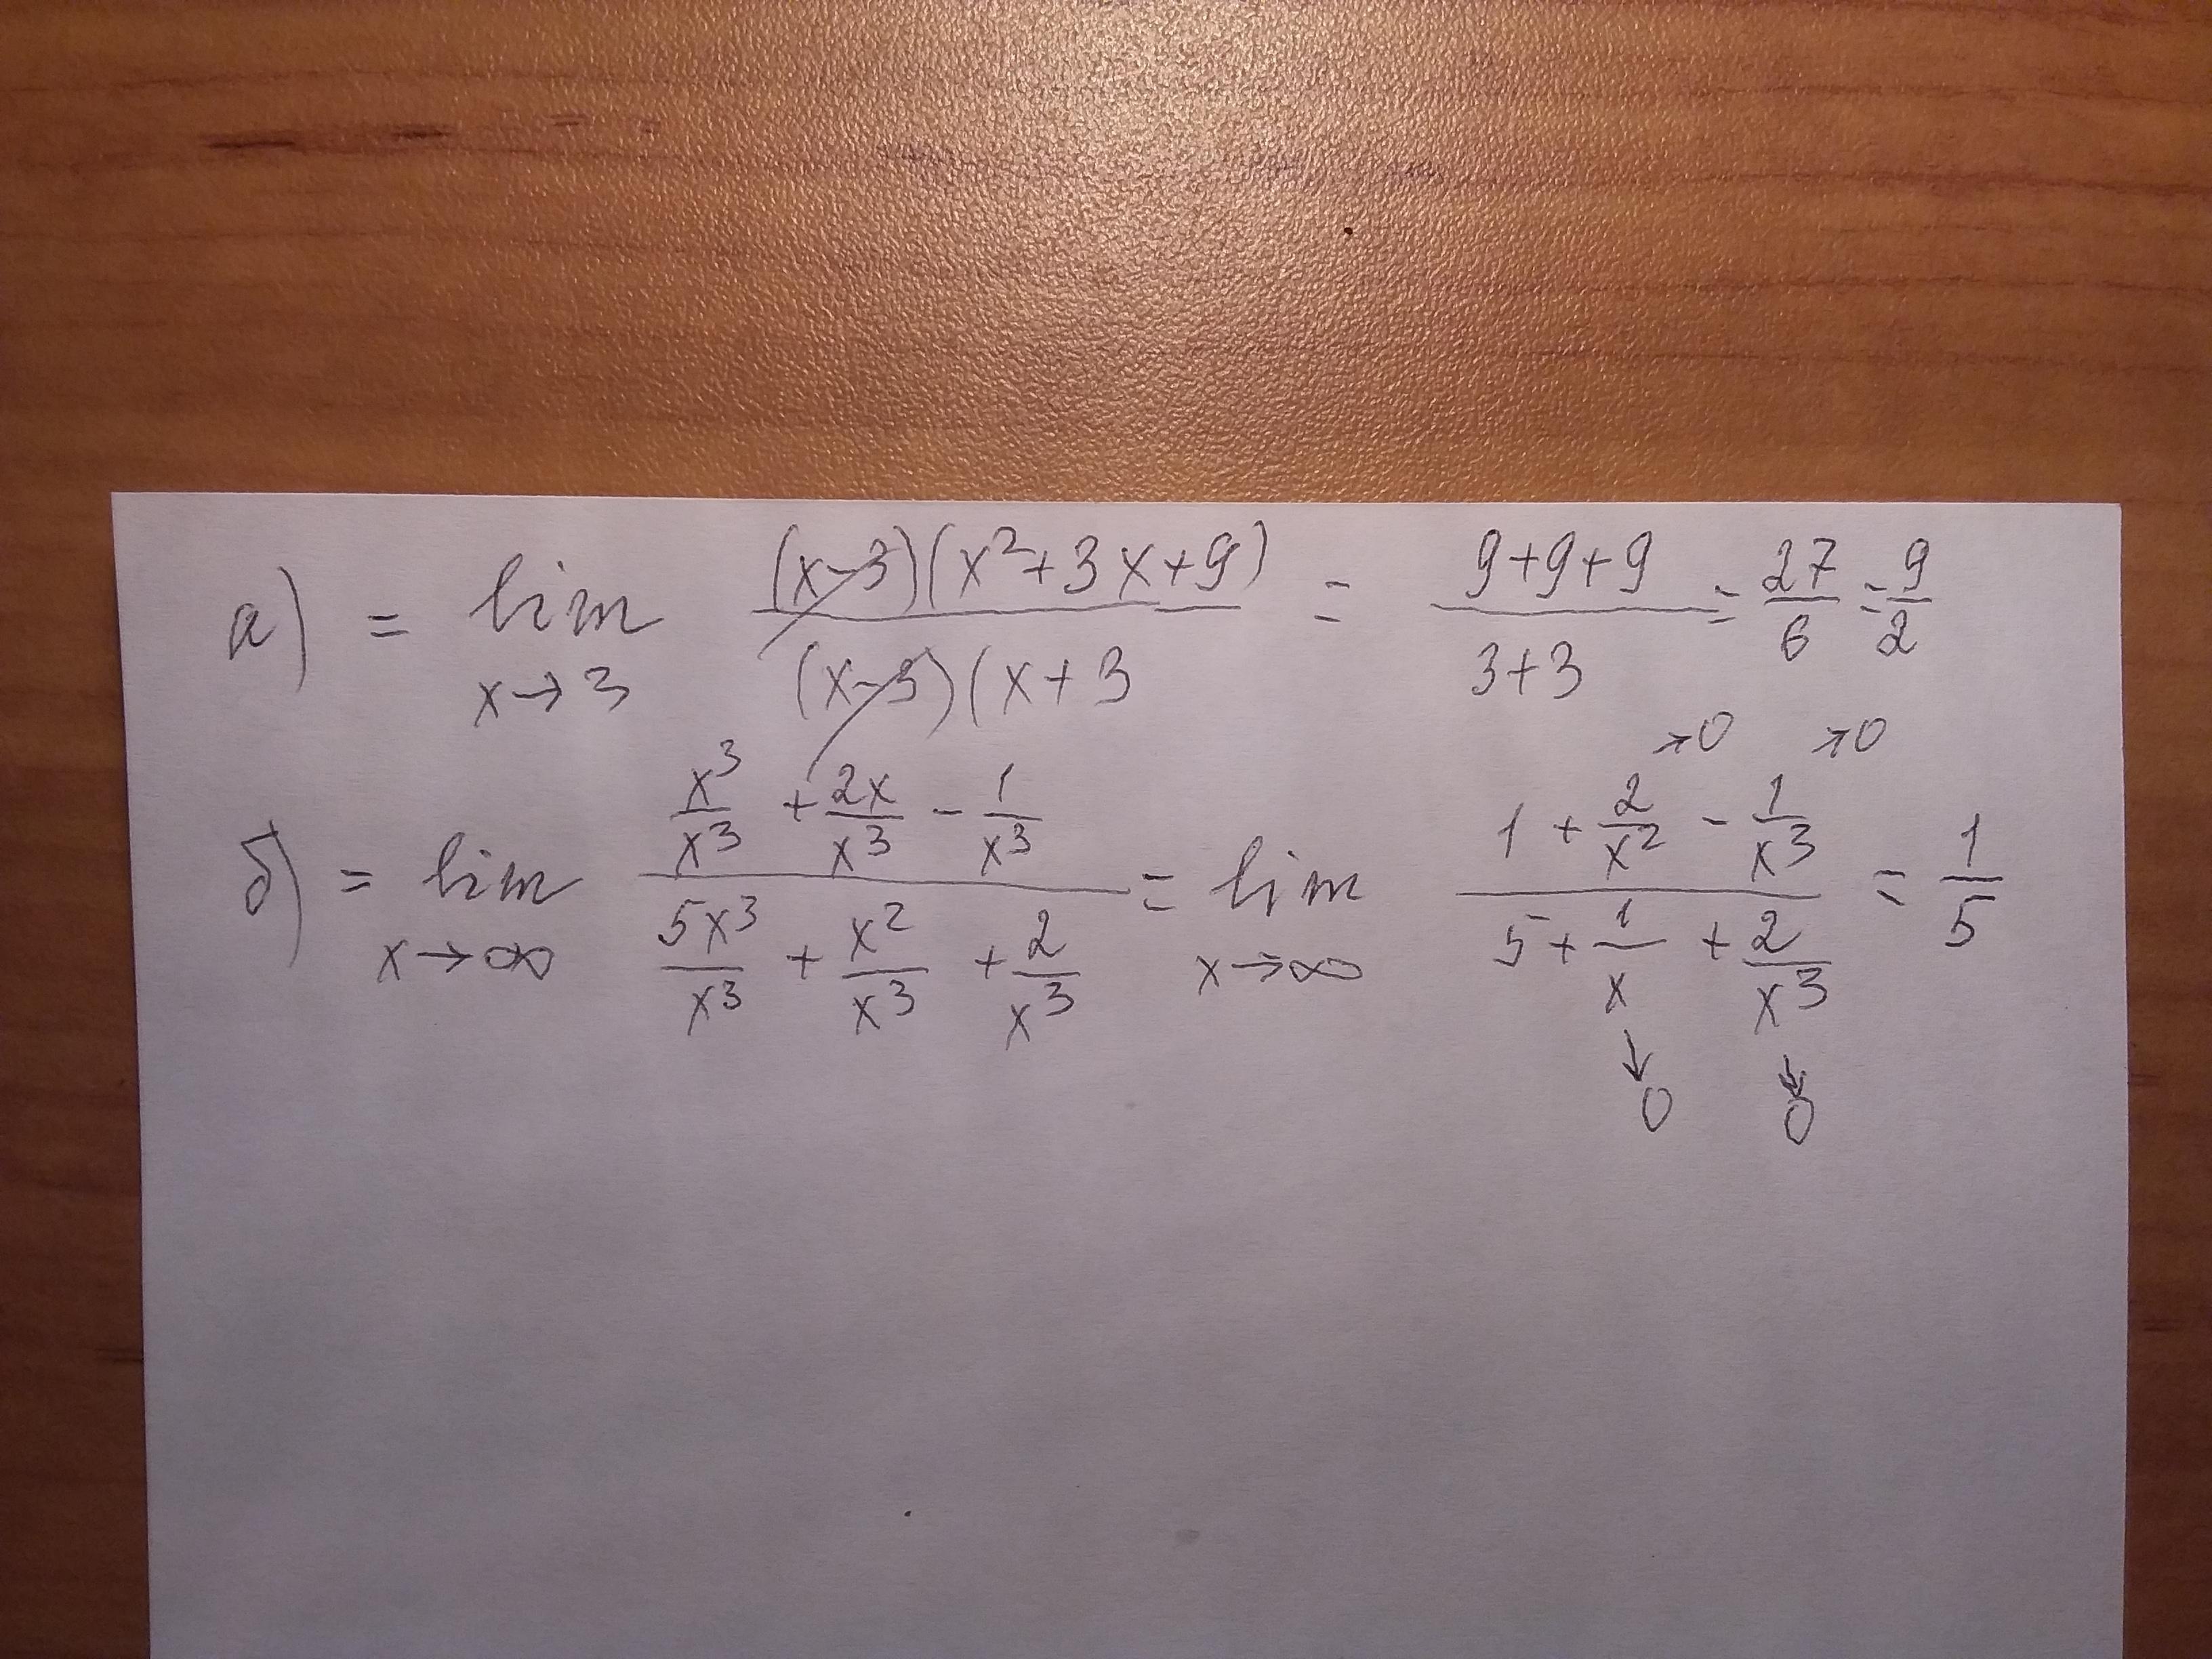 а) = lim x→3 (x-3)(x²+3x+9) / (x-3)(x+3 = 9+9+9 / 3+3 = 27/6 = 9/2
б) = lim x→∞ x³/x³ + 2x/x³ - 1/x³ / 5x³/x³ + x²/x³ + 2/x³ = lim x→∞ 1 + 2/x² →0 - 1/x³ →0 / 5 + 1/x ↓ 0 + 2/x³ ↓ 0 = 1/5